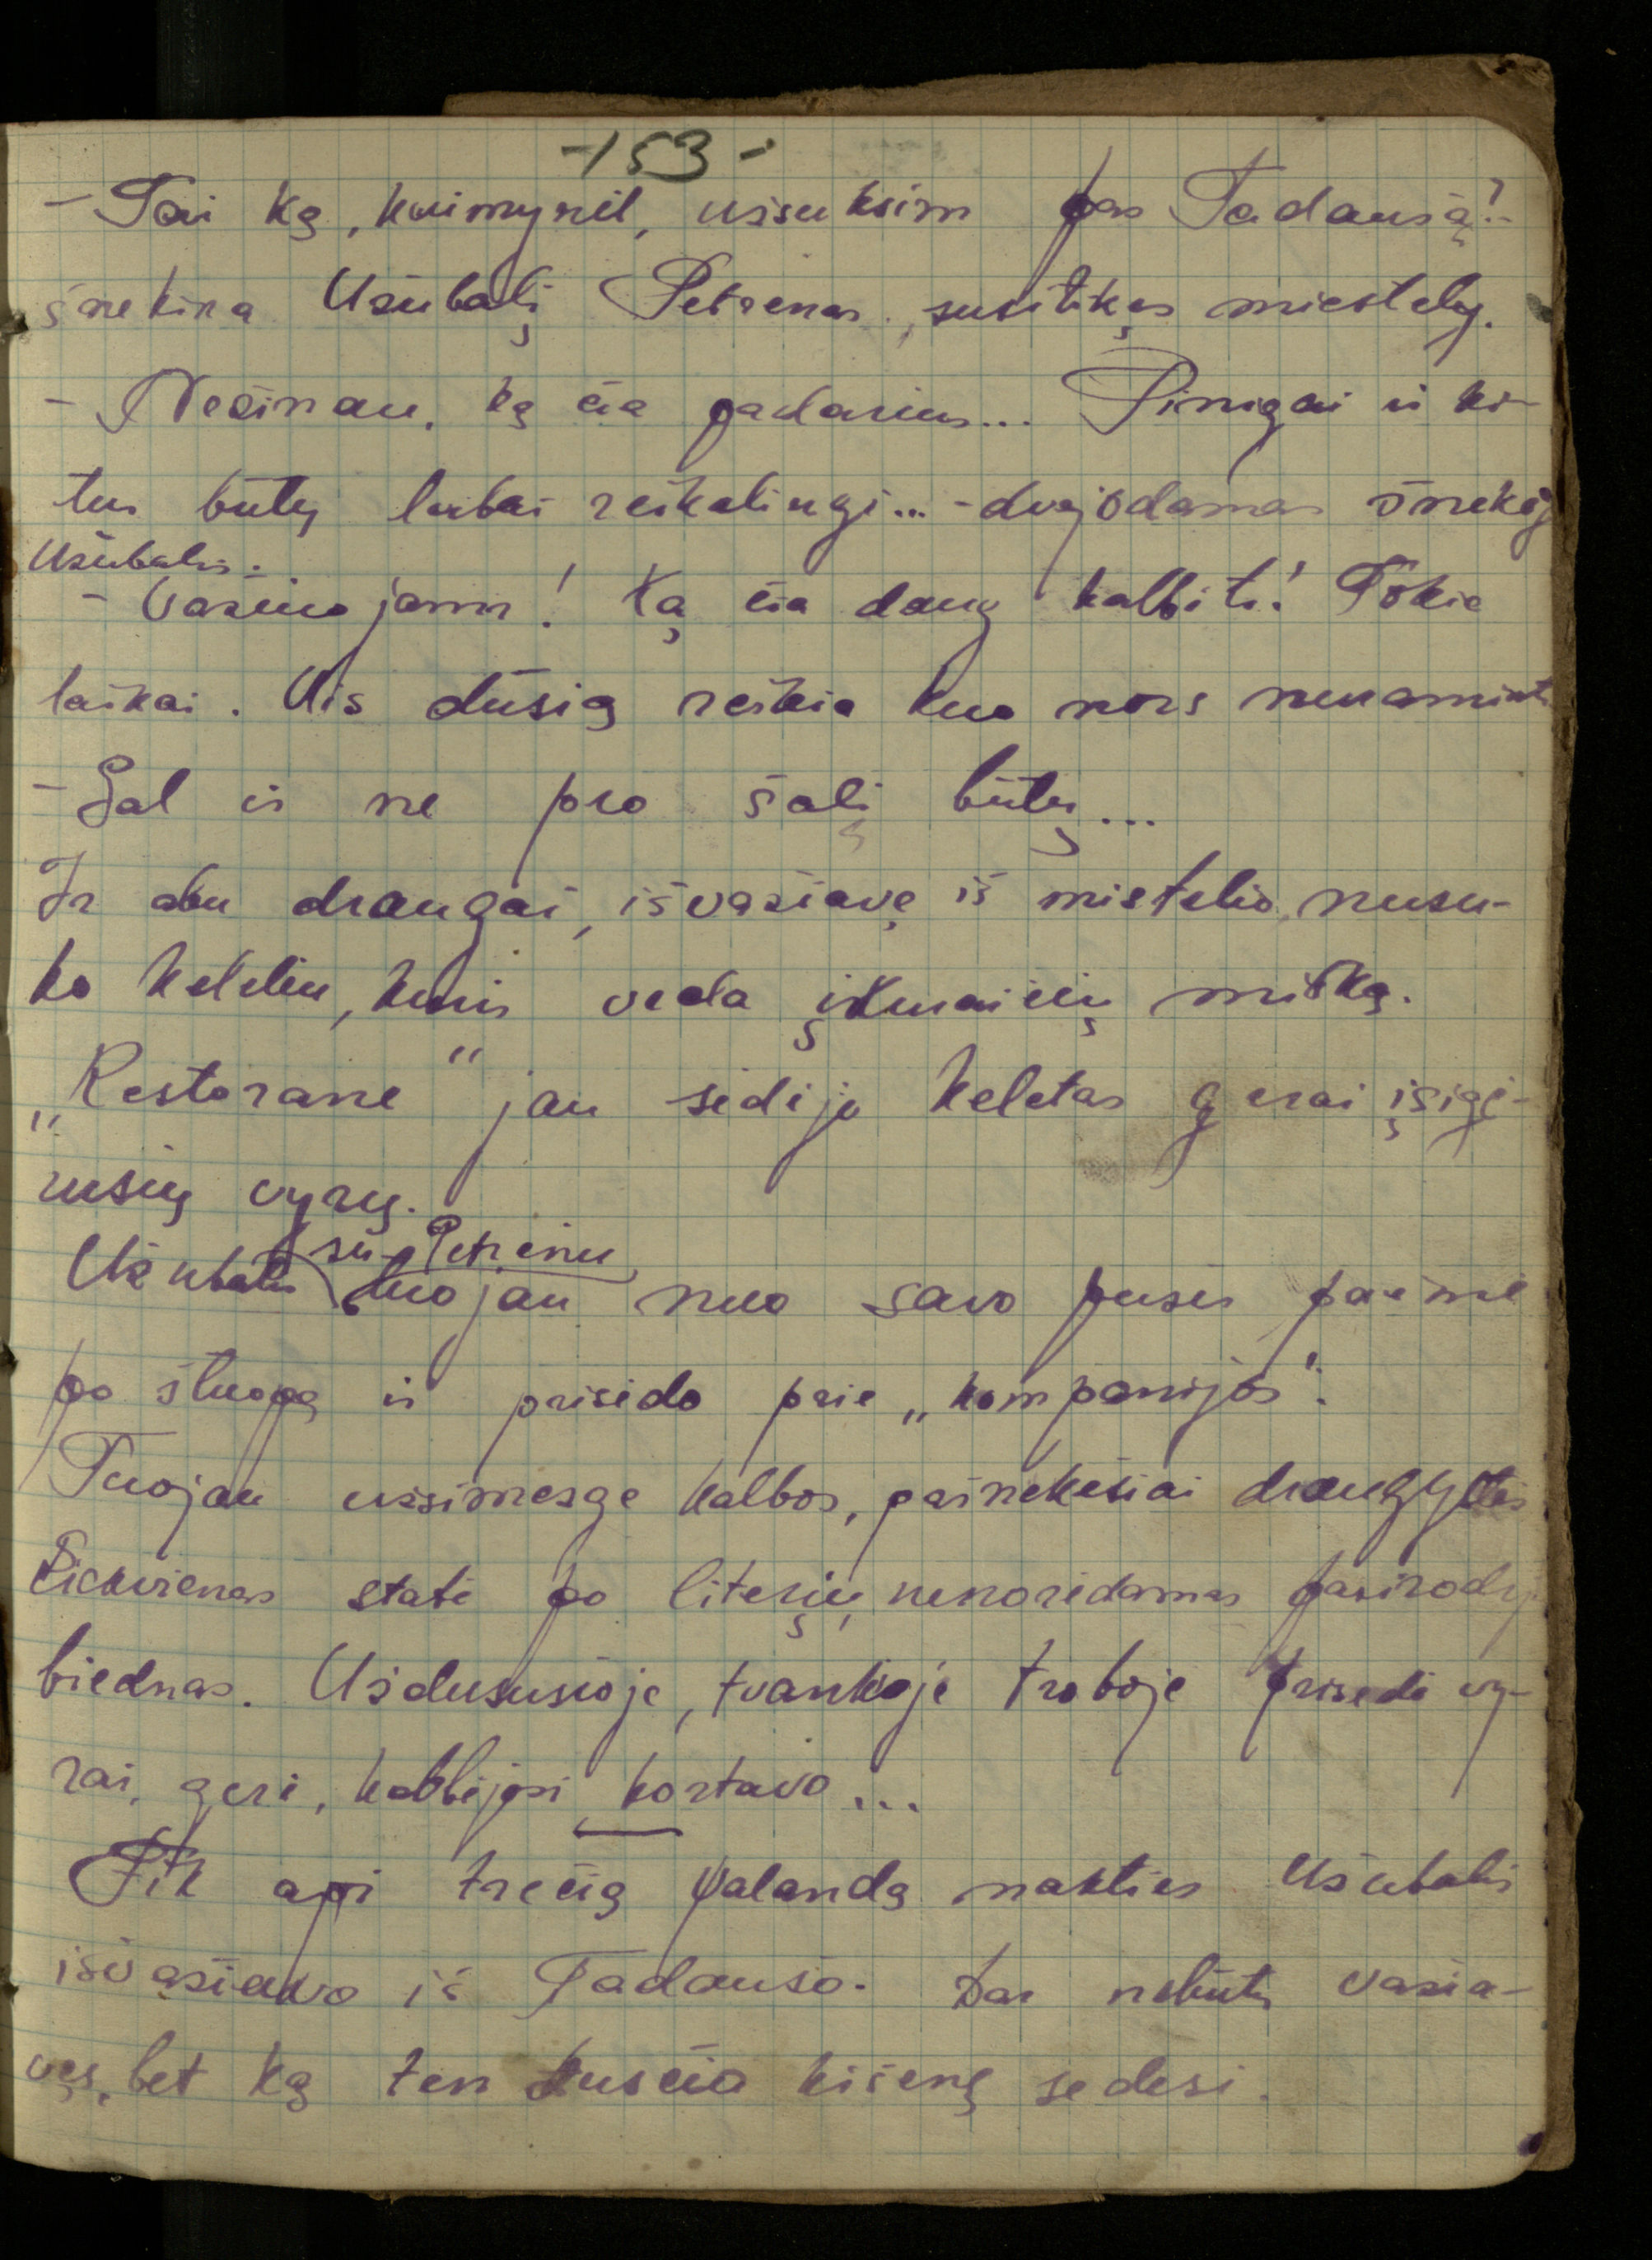 -153-
- Tai ką, kaimynėl, užsuksim pas Tadaušą? -
šnekina Užubalį Petrėnas, susitikęs miestely.
- Nežinau, ką čia padarius... Pinigai ir ki-
tur būtų labai reikalingi... - dvejodamas šnekėjo
Užubalis.
- Važiuojam! Ką čia daug kalbėti! Tokie
laikai. Vis dūšią reikia kuo nors nuraminti
- Gal ir ne pro šalį būtų...
Ir abu draugai, išvažiavę iš miestelio, nusu-
ko keleliu, kuris veda į Kunaičių mišką.
„Restorane" jau sėdėjo keletas gerai įsigė-
rusių vyrų.
Užubalis su Petrėnu tuojau nuo savo pusės paėmė
po stuopą ir prisėdo prie „kompanijos".
Tuojau užsimezgė kalbos, pašnekesiai draugystės
Kiekvienas statė po literių, nenorėdamas pasirodyti
biednas. Uždususioje, tvankioje troboje prisėdę vy-
rai, gėrė, kalbėjosi, kortavo...
Tik apie trečią valandą nakties Užubalis
išvažiavo iš Tadaušo. Dar nebūtų važia-
vęs, bet ką ten tuščia kišenę sėdėsi.